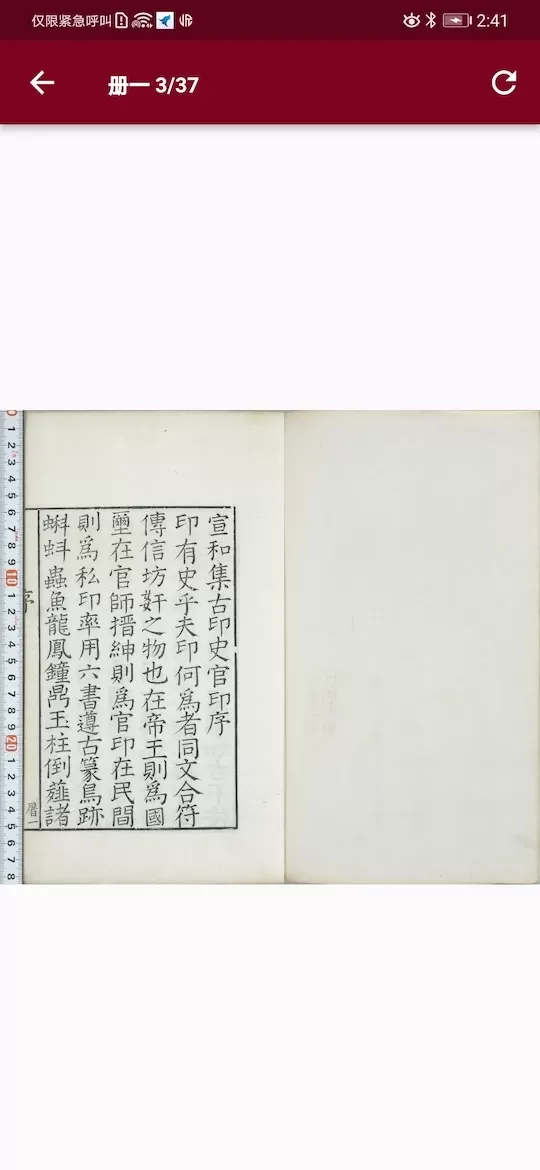 仅限紧急呼叫
2:41
册一 3/37
宣和集古印史官印序
印有史乎夫印何爲者同文合符
傳信坊奸之物也在帝王則爲國
璽在官師搢紳則爲官印在民間
則爲私印率用六書遵古篆鳥跡
蝌蚪蟲魚龍鳳鐘鼎玉柱倒薤諸
序
0 1 2 3 4 5 6 7 8 9 10 1 2 3 4 5 6 7 8 9 20 1 2 3 4 5 6 7 8